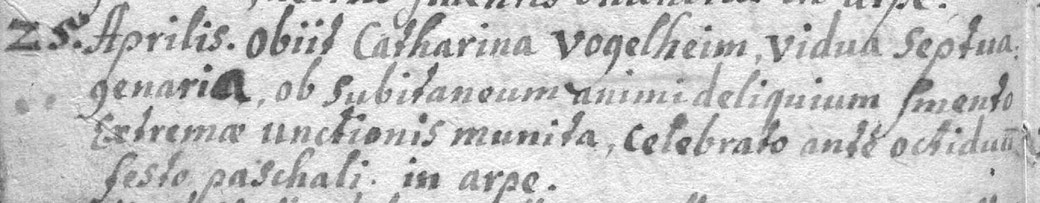 in arpe.
25. Aprilis. obiit Catharina Vogelheim, vidua septua
genaria, ob subitaneum animi deliquium smento
Extremæ unctionis munita, celebrato ante octiduū
festo paschali. in arpe.